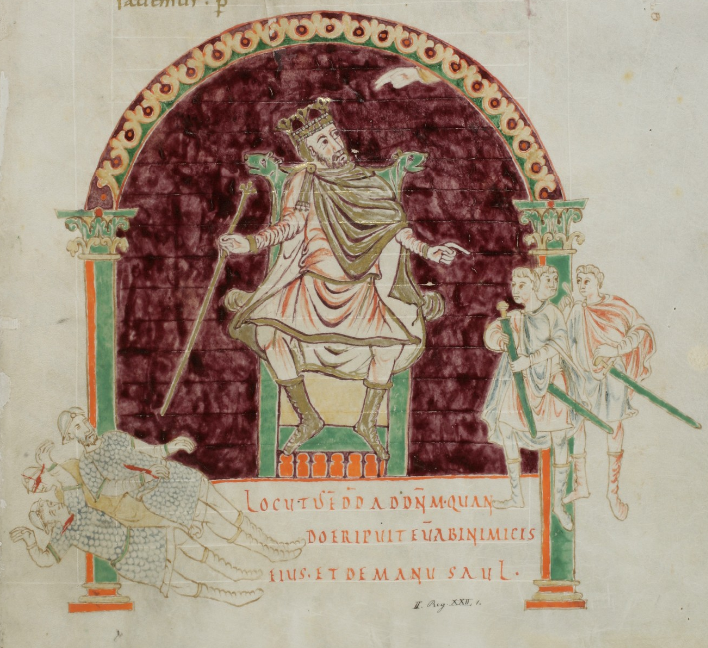 LOCUTUS̄ E D̄D AD DN̄M· QUAN
DO ERIPUIT EŪ AB INIMICIS
EIUS· ET DE MANU SAUL·
II. Reg. XXII, 1.